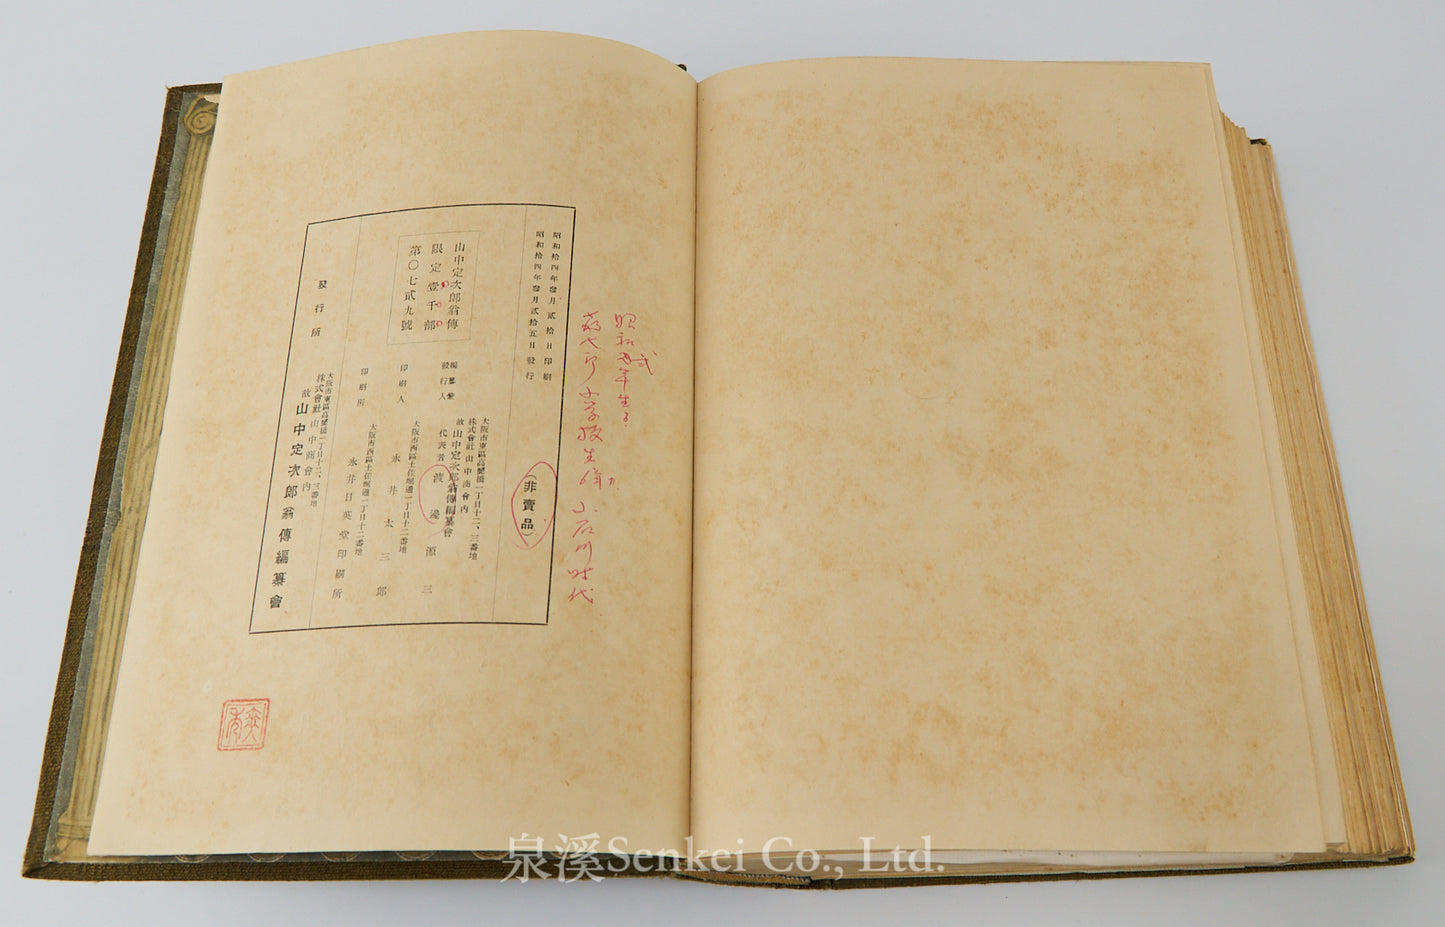 昭和拾四年參月貳拾日印刷
昭和拾四年參月貳拾五日發行
(非賣品)
山中定次郎翁傳
限定壹千部
第〇七貳九號
編纂兼
發行人
大阪市東區高麗橋一丁目十二、三番地
株式會社山中商會內
故山中定次郎翁傳編纂會
代表者 渡邊源三
印刷人
大阪市西區土佐堀通一丁目十二番地
永井太三郎
印刷所
大阪市西區土佐堀通一丁目十二番地
永井日英堂印刷所
發行所
大阪市東區高麗橋一丁目十二、三番地
株式會社山中商會內
故山中定次郎翁傳編纂會
昭和
年生
小石川時代
泉溪Senkei Co., Ltd.